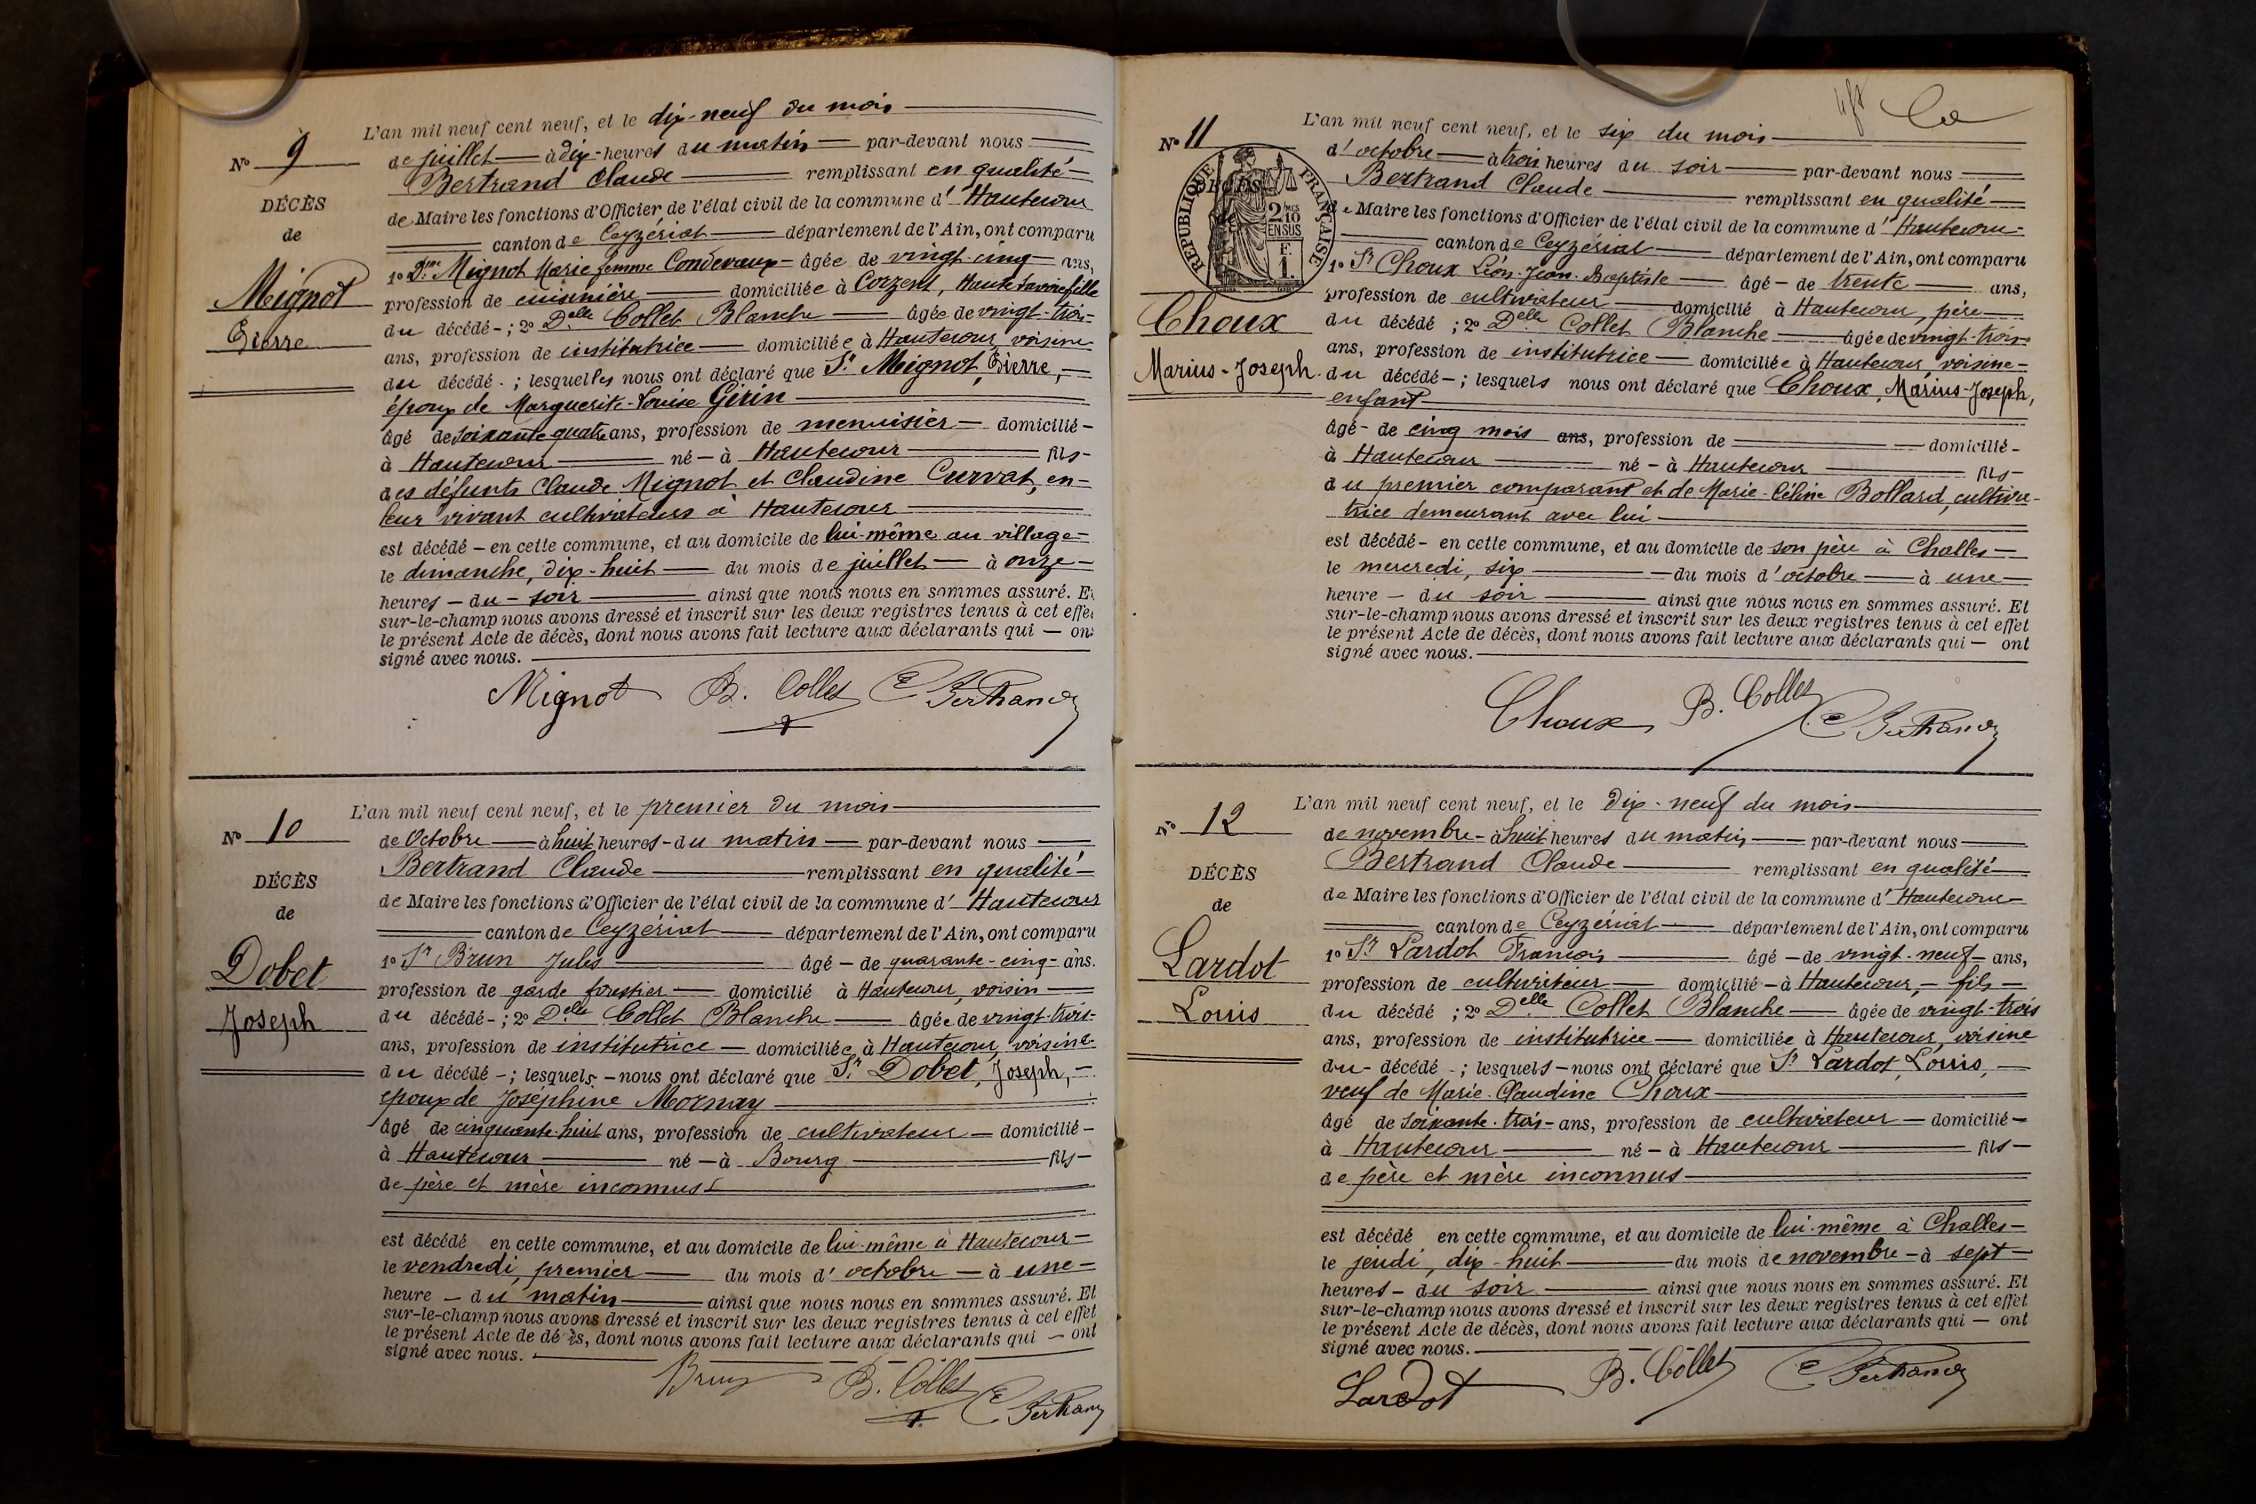 L'an mil neuf cent neuf, et le dix-neuf du mois
N° 9
de juillet à dix heures du matin par-devant nous
Bertrand Claude remplissant en qualité
DÉCÈS
de Maire les fonctions d'Officier de l'état civil de la commune d' Hautecour
de
canton de Ceyzériat département de l'Ain, ont comparu
Mignot
1° Dme Mignot Marie femme Condevaux âgée de vingt-cinq ans,
profession de cuisinière domiciliée à Corzent, Haute Savoie fille
Pierre
du décédé ; 2° Delle Collet Blanche âgée de vingt-trois
ans, profession de institutrice domiciliée à Hautecour, voisine
du décédé ; lesquelles nous ont déclaré que Sr Mignot, Pierre,
époux de Marguerite-Louise Girin
âgé de soixante quatre ans, profession de menuisier domicilié
à Hautecour né à Hautecour fils
des défunts Claude Mignot et Claudine Curvat, en
leur vivant cultivateurs à Hautecour
est décédé en cette commune, et au domicile de lui-même au village
le dimanche, dix-huit du mois de juillet à onze
heures du soir ainsi que nous nous en sommes assuré. Et
sur-le-champ nous avons dressé et inscrit sur les deux registres tenus à cet effet
le présent Acte de décès, dont nous avons fait lecture aux déclarants qui ont
signé avec nous.
Mignot B. Collet C Bertrand
L'an mil neuf cent neuf, et le premier du mois
N° 10
de Octobre à huit heures du matin par-devant nous
Bertrand Claude remplissant en qualité
DÉCÈS
de Maire les fonctions d'Officier de l'état civil de la commune d' Hautecour
de
canton de Ceyzériat département de l'Ain, ont comparu
Dobet
1° Sr Brun Jules âgé de quarante-cinq ans.
profession de garde forestier domicilié à Hautecour, voisin
Joseph
du décédé ; 2° Delle Collet Blanche âgée de vingt-trois
ans, profession de institutrice domiciliée à Hautecour, voisine
du décédé ; lesquels nous ont déclaré que Sr Dobet, Joseph,
époux de Joséphine Mornay
âgé de cinquante-huit ans, profession de cultivateur domicilié
à Hautecour né à Bourg fils
de père et mère inconnus
est décédé en cette commune, et au domicile de lui-même à Hautecour
le vendredi, premier du mois d' octobre à une
heure du matin ainsi que nous nous en sommes assuré. Et
sur-le-champ nous avons dressé et inscrit sur les deux registres tenus à cet effet
le présent Acte de dé ès, dont nous avons fait lecture aux déclarants qui ont
signé avec nous.
Brun B. Collet C Bertrand
L'an mil neuf cent neuf, et le six du mois
N° 11
d' octobre à trois heures du soir par-devant nous
Bertrand Claude remplissant en qualité
RÉPUBLIQUE FRANÇAISE
2/10 EN SUS
F. 1.
de Maire les fonctions d'Officier de l'état civil de la commune d' Hautecour
canton de Ceyzériat département de l'Ain, ont comparu
1° Sr Choux Léon-Jean-Baptiste âgé de trente ans,
profession de cultivateur domicilié à Hautecour, père
Choux
du décédé ; 2° Delle Collet Blanche âgée de vingt-trois
ans, profession de institutrice domiciliée à Hautecour, voisine
Marius-Joseph
du décédé ; lesquels nous ont déclaré que Choux, Marius-Joseph,
enfant
âgé de cinq mois ans, profession de domicilié
à Hautecour né à Hautecour fils
du premier comparant et de Marie-Céline Bollard, cultiva-
trice demeurant avec lui
est décédé en cette commune, et au domicile de son père à Challes
le mercredi, six du mois d' octobre à une
heure du soir ainsi que nous nous en sommes assuré. Et
sur-le-champ nous avons dressé et inscrit sur les deux registres tenus à cet effet
le présent Acte de décès, dont nous avons fait lecture aux déclarants qui ont
signé avec nous.
Choux B. Collet C Bertrand
L'an mil neuf cent neuf, et le Dix-neuf du mois
N° 12
de novembre à huit heures du matin par-devant nous
Bertrand Claude remplissant en qualité
DÉCÈS
de Maire les fonctions d'Officier de l'état civil de la commune d' Hautecour
de
canton de Ceyzériat département de l'Ain, ont comparu
Lardot
1° Sr Lardot François âgé de vingt-neuf ans,
profession de cultivateur domicilié à Hautecour, fils
Louis
du décédé ; 2° Delle Collet Blanche âgée de vingt-trois
ans, profession de institutrice domiciliée à Hautecour, voisine
du décédé ; lesquels nous ont déclaré que Sr Lardot, Louis,
veuf de Marie-Claudine Choux
âgé de soixante-trois ans, profession de cultivateur domicilié
à Hautecour né à Hautecour fils
de père et mère inconnus
est décédé en cette commune, et au domicile de lui-même à Challes
le jeudi, dix-huit du mois de novembre à sept
heures du soir ainsi que nous nous en sommes assuré. Et
sur-le-champ nous avons dressé et inscrit sur les deux registres tenus à cet effet
le présent Acte de décès, dont nous avons fait lecture aux déclarants qui ont
signé avec nous.
Lardot B. Collet C Bertrand